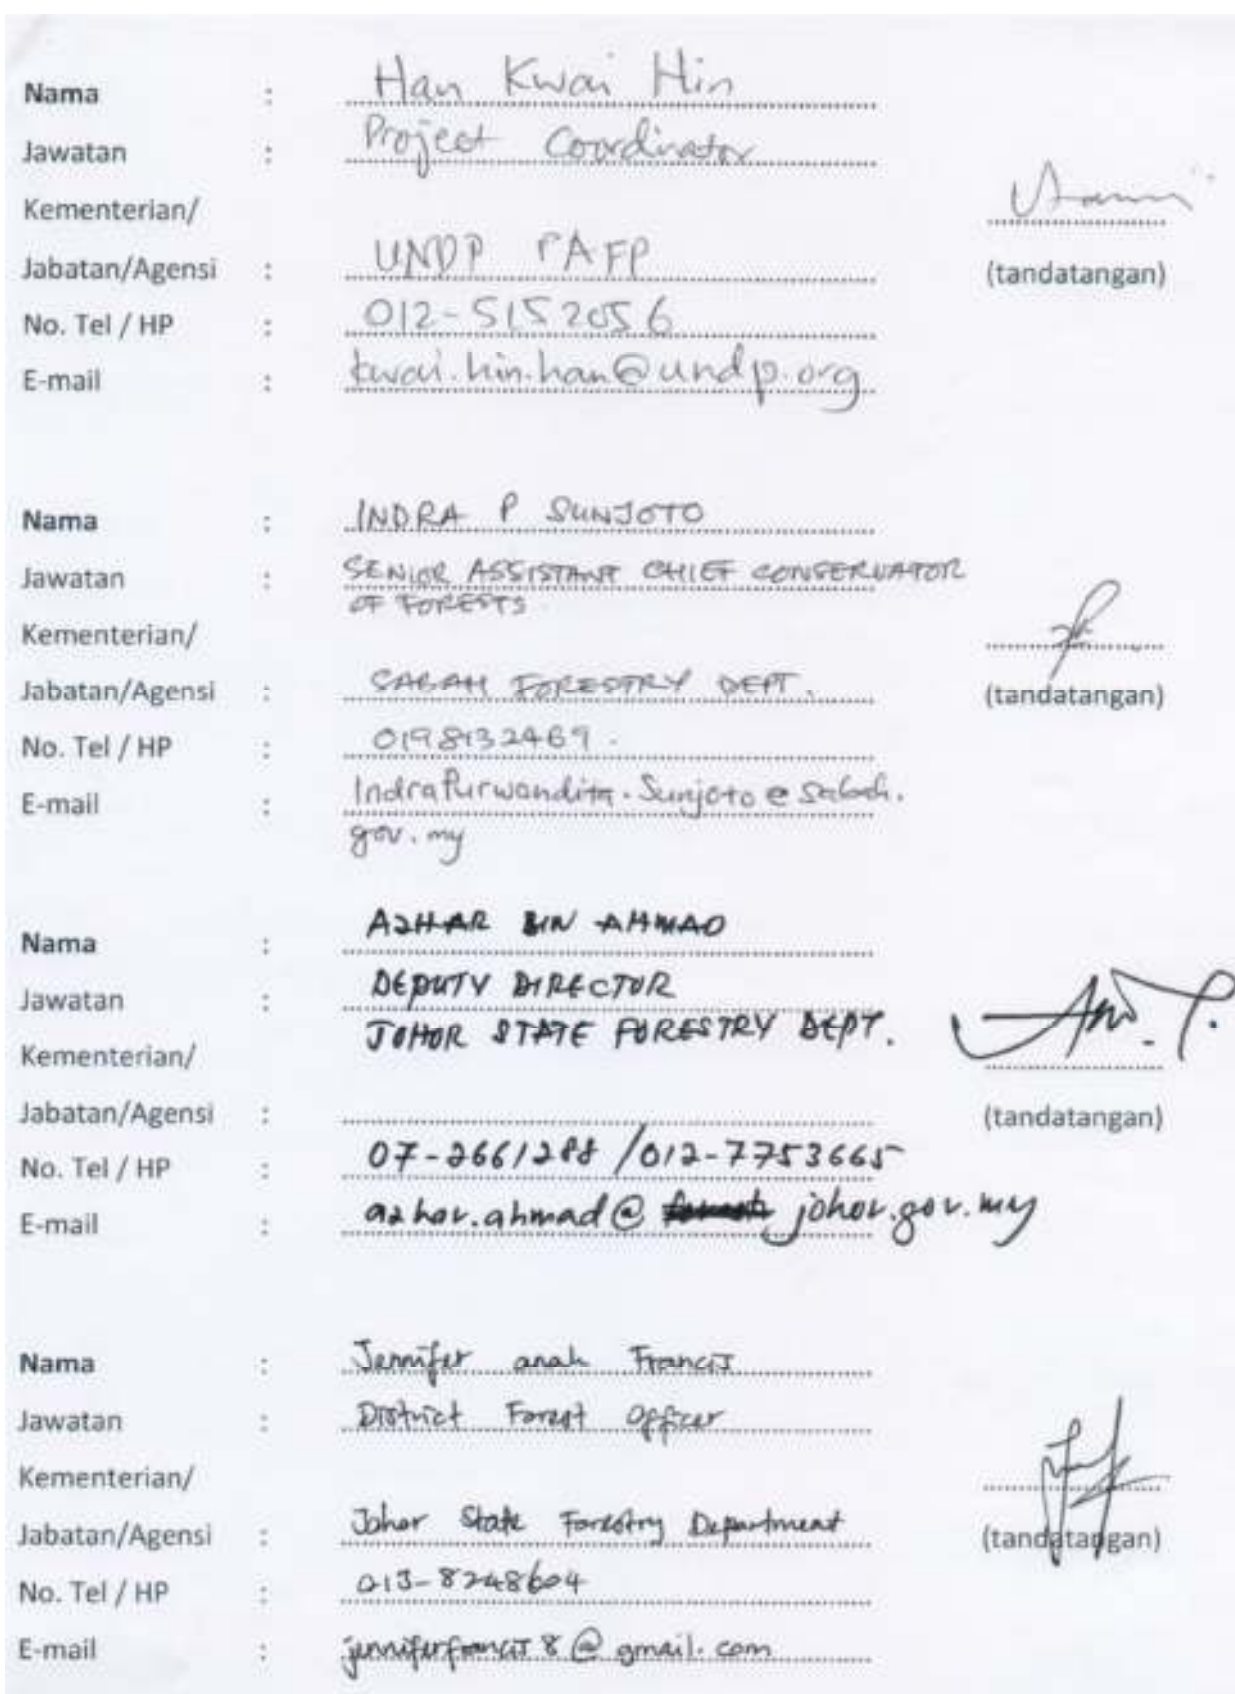 Nama : Han Kwai Hin
Jawatan : Project Coordinator
Kementerian/
Jabatan/Agensi : UNDP PAFP
(tandatangan)
No. Tel / HP : 012-5152056
E-mail : kwai.hin.han@undp.org
Nama : INDRA P SUNJOTO
Jawatan : SENIOR ASSISTANT CHIEF CONSERVATOR
OF FORESTS
Kementerian/
Jabatan/Agensi : SABAH FORESTRY DEPT.
(tandatangan)
No. Tel / HP : 0198132469.
E-mail : IndraPurwandita.Sunjoto@sabah.
gov.my
Nama : AZHAR BIN AHMAD
Jawatan : DEPUTY DIRECTOR
JOHOR STATE FORESTRY DEPT.
Kementerian/
Jabatan/Agensi :
(tandatangan)
No. Tel / HP : 07-2661288 /012-7753665
E-mail : azhar.ahmad@ johor.gov.my
Nama : Jennifer anak Francis
Jawatan : District Forest Officer
Kementerian/
Jabatan/Agensi : Johor State Forestry Department
(tandatangan)
No. Tel / HP : 013-8248604
E-mail : jenniferfrancis8@gmail.com